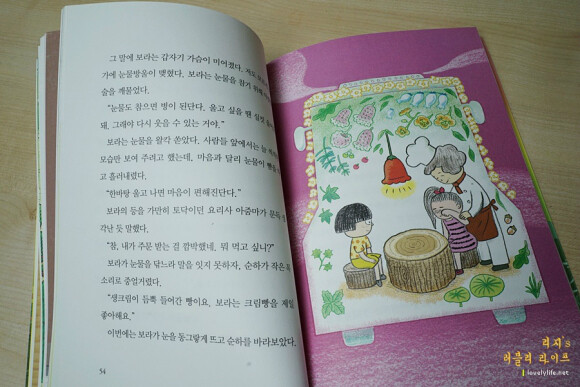 그 말에 보라는 갑자기 가슴이 미어졌다. 저도
가에 눈물방울이 맺혔다. 보라는 눈물을 참기 위해
술을 깨물었다.
“눈물도 참으면 병이 된단다. 울고 싶을 땐 실컷
돼. 그래야 다시 웃을 수 있는 거야.”
보라는 눈물을 왈칵 쏟았다. 사람들 앞에서는
모습만 보여 주려고 했는데, 마음과 달리 눈물이
고 흘러내렸다.
“한바탕 울고 나면 마음이 편해진단다.”
보라의 등을 가만히 토닥이던 요리사 아줌마가
각난 듯 말했다.
“참, 내가 주문 받는 걸 깜박했네. 뭐 먹고 싶니?”
보라가 눈물을 닦느라 말을 잇지 못하자, 순하가 작은
소리로 중얼거렸다.
“생크림이 듬뿍 들어간 빵이요. 보라는 크림빵을 제일
좋아해요.”
이번에는 보라가 눈을 동그랗게 뜨고 순하를 바라보았다.
54
리지's
러블리 라이프
lovelylife.net